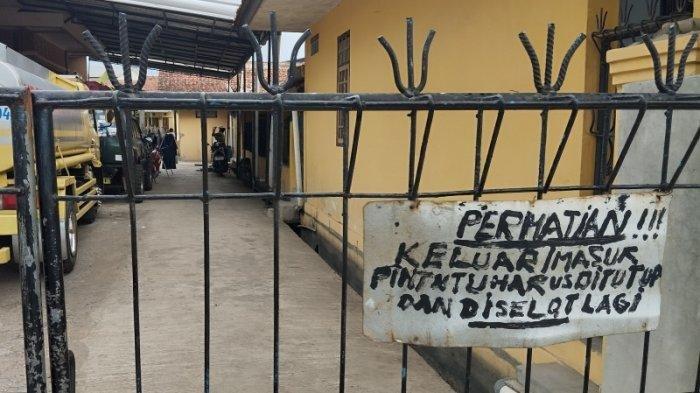 PERHATIAN!!!
KELUAR/MASUK
PINTNTU HARUS DITUTUP
DAN DISELOT LAGI
04